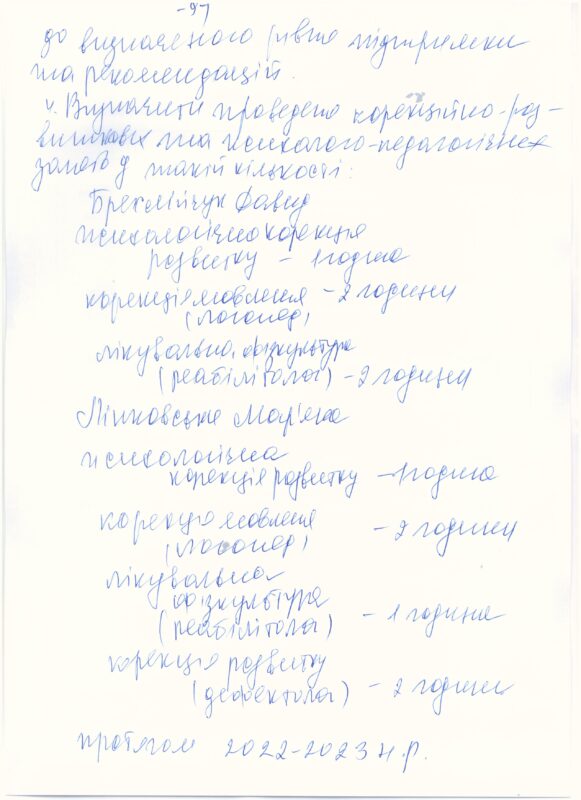 -97
до визначеного рівня підтримки
та рекомендацій.
4. Визначити проведено корекційно-роз-
виткових та психолого-педагогічних
занять у такій кількості:
Давид
психологічна корекція
розвитку - 1 година
корекція мовлення - 2 години
(логопед)
лікувальна фізкультура
(реабілітолог) - 2 години
Мар'яна
психологічна
корекція розвитку - 1 година
корекція мовлення - 2 години
(логопед)
лікувальна
фізкультура
(реабілітолог) - 1 година
корекція розвитку
(дефектолог) - 2 години
протягом 2022-2023 н.р.